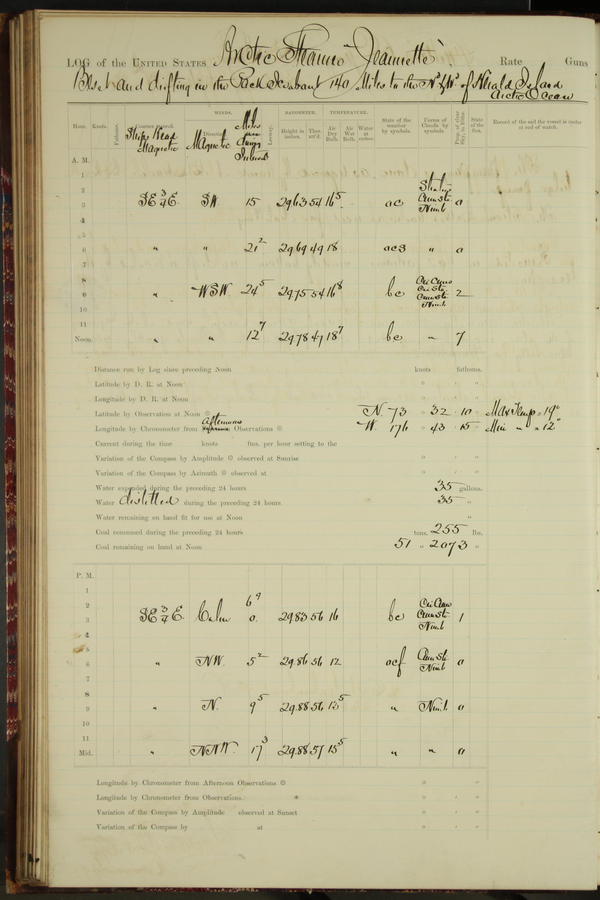 LOG of the UNITED STATES Arctic Steamer "Jeannette". Rate Guns
Beset and drifting in the Pack Ice about 140 Miles to the Nd & Wd of Herald Island
Arctic Ocean
WINDS. BAROMETER. TEMPERATURE.
Hour. Knots. Fathoms. Ship's Head Magnetic Direction Magnetic Miles Leeway. Height in inches. Ther. att'd. Air Dry Bulb. Air Wet Bulb. Water at surface. State of the weather by symbols. Forms of Clouds by symbols. Prop. of clear sky, in 10ths. State of the Sea. Record of the sail the vessel is under at end of watch.
A. M.
1
2
3 SE 3/4 E. SW. 15 29.63 54 16⁵ oc Cum St. Nimb 0
4
5
6 " " 21² 29.69 49 18 ocs " 0
7
8
9 " WSW 24⁵ 29.75 54 16⁸ bc Cir Cum Cir St. Cum St. Nimb. 2
10
11
Noon. " " 12⁷ 29.78 47 18⁷ bc " 7
Distance run by Log since preceding Noon knots fathoms.
Latitude by D. R. at Noon ° ' "
Longitude by D. R. at Noon ° ' "
Latitude by Observation at Noon N. 73 ° 32 ' 10 " Max Temp. 19°
Longitude by Chronometer from afternoon Observations W. 176 ° 43 ' 15 " Min " " 12°
Current during the time knots fms. per hour setting to the
Variation of the Compass by Amplitude observed at Sunrise ° ' "
Variation of the Compass by Azimuth observed at ° ' "
Water expended during the preceding 24 hours 35 gallons.
Water distilled during the preceding 24 hours 35 "
Water remaining on hand fit for use at Noon "
Coal consumed during the preceding 24 hours tons, 255 lbs.
Coal remaining on hand at Noon 51 " 2073 "
P. M.
1
2
3 SE 3/4 E. Calm 6⁹ 0. 29.83 56 16 bc Cir Cum Cum St. Nimb 1
4
5
6 " NW. 5² 29.86 56 12 ocf Cum St. Nimb 0
7
8
9 " N. 9⁵ 29.88 56 13⁵ " Nimb. 0
10
11
Mid. " NNW. 17³ 29.88 57 15⁵ " " 0
Longitude by Chronometer from Afternoon Observations ° ' "
Longitude by Chronometer from Observations. * ° ' "
Variation of the Compass by Amplitude observed at Sunset ° ' "
Variation of the Compass by at ° ' "